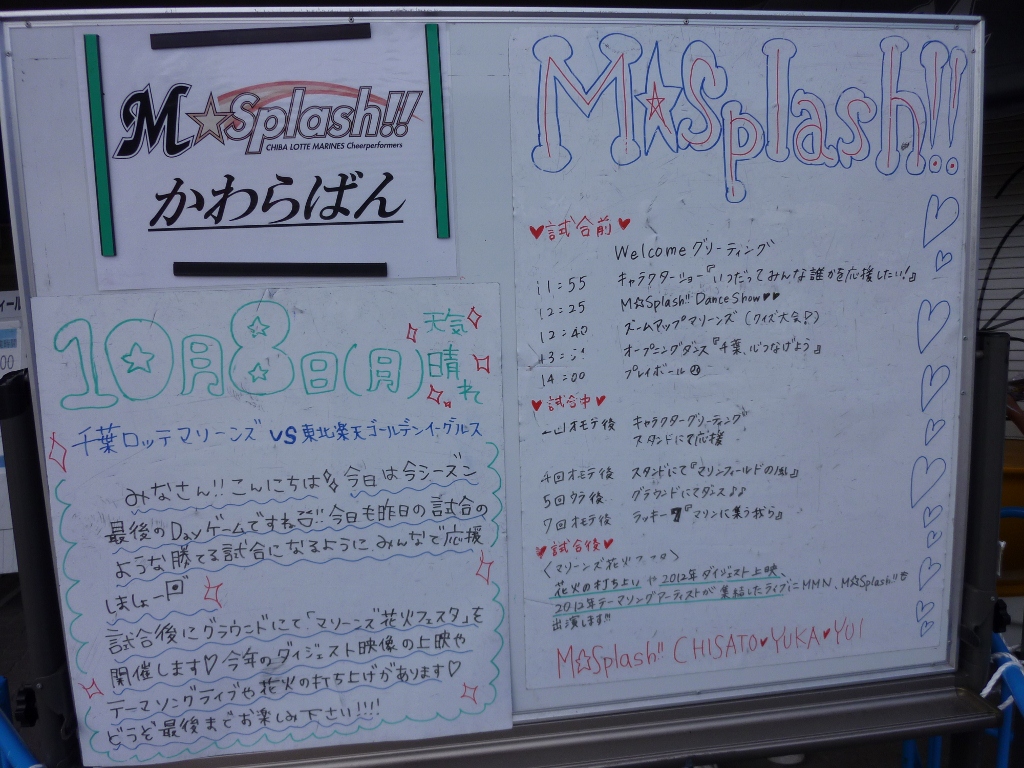 M☆Splash!!
CHIBA LOTTE MARINES Cheerperformers
かわらばん
10月8日(月)
天気
晴れ
千葉ロッテマリーンズ VS 東北楽天ゴールデンイーグルス
みなさん!!こんにちは 今日は今シーズン
最後のDayゲームですね!!今日も昨日の試合の
ような勝てる試合になるように みんなで応援
しましょー
試合後にグラウンドにて「マリーンズ花火フェスタ」を
開催します♡今年のダイジェスト映像の上映や
テーマソングライブや花火の打ち上げがあります♡
どうぞ最後までお楽しみ下さい!!!!
M☆Splash!!
♥試合前♥
Welcomeグリーティング
11:55 キャラクターショー『いつだってみんな誰かを応援したい!』
12:25 M☆Splash!! Dance Show♥♥
12:40 ズームマップマリーンズ (クイズ大会?)
オープニングダンス『千葉、心つなげよう』
14:00 プレイボール
♥試合中♥
オモテ後 キャラクターグリーティング
スタンドにて応援
4回オモテ後 スタンドにて『マリンフィールドの風』
5回ウラ後 グラウンドにてダンス♪♪
7回オモテ後 ラッキー7『マリンに集う我ら』
♥試合後♥
〈マリーンズ花火フェスタ〉
花火の打ち上げや2012年ダイジェスト上映、
2012年テーマソングアーティストが集結したライブにMMN、M☆Splash!!も
出演します!!
M☆Splash!! CHISATO♥YUKA♥YUI